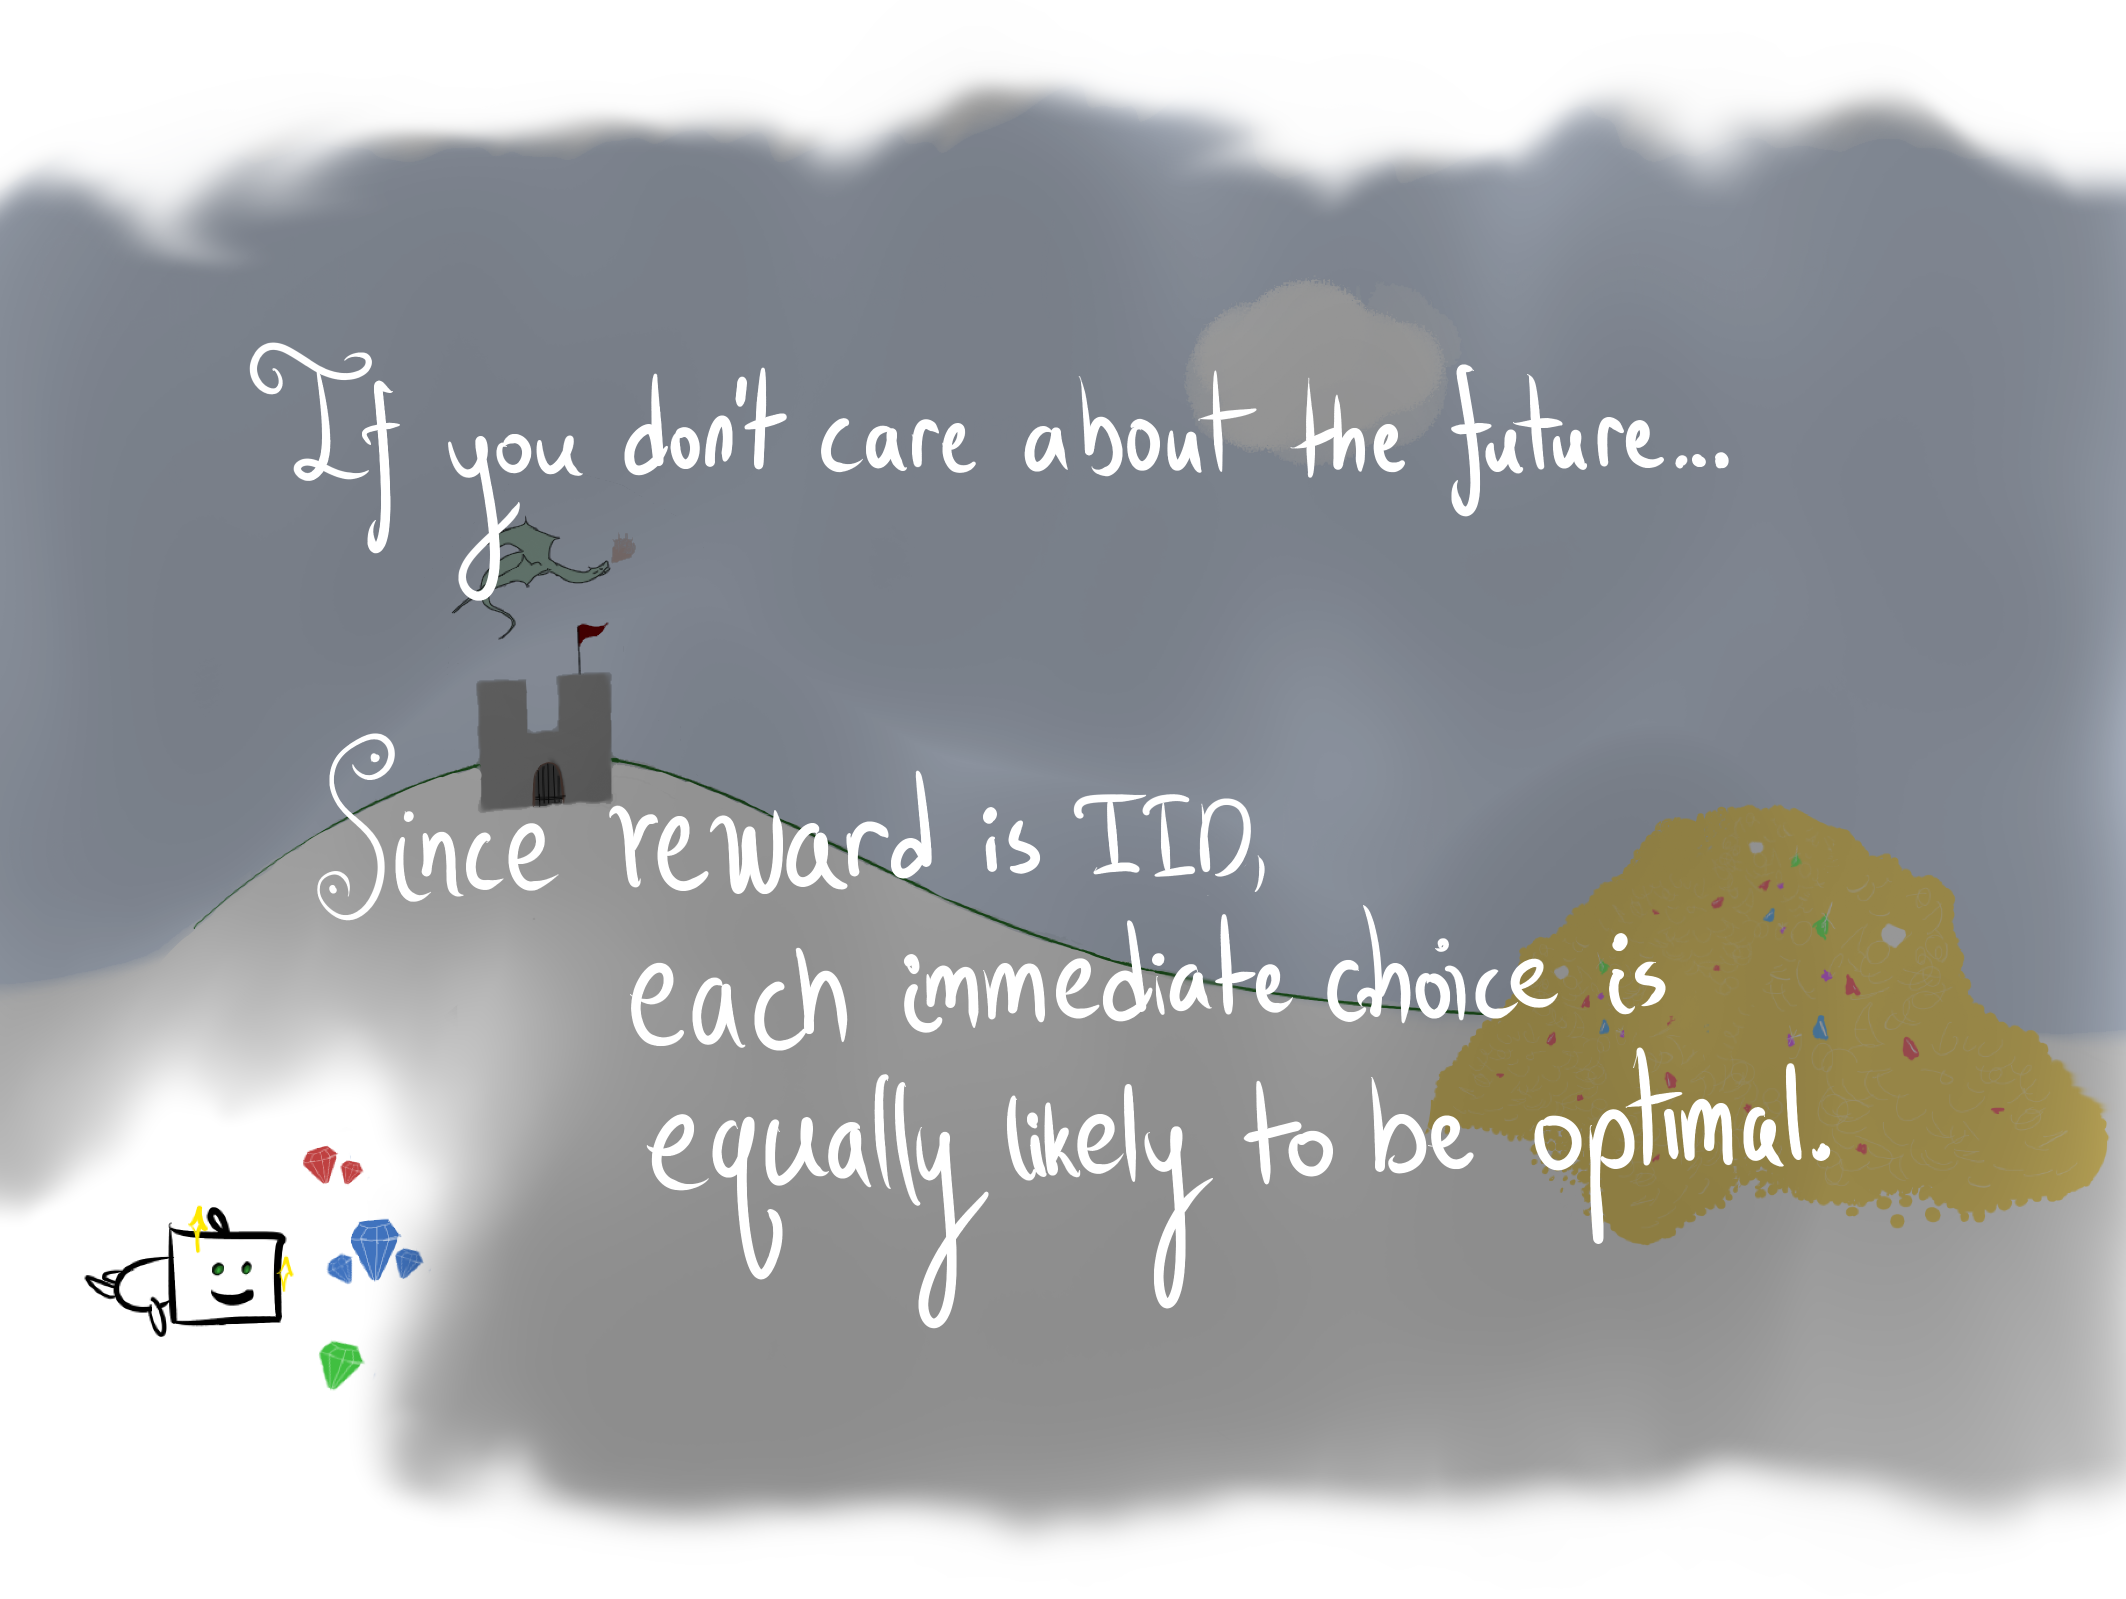 If you don't care about the future...
Since reward is IID,
each immediate choice is
equally likely to be optimal.